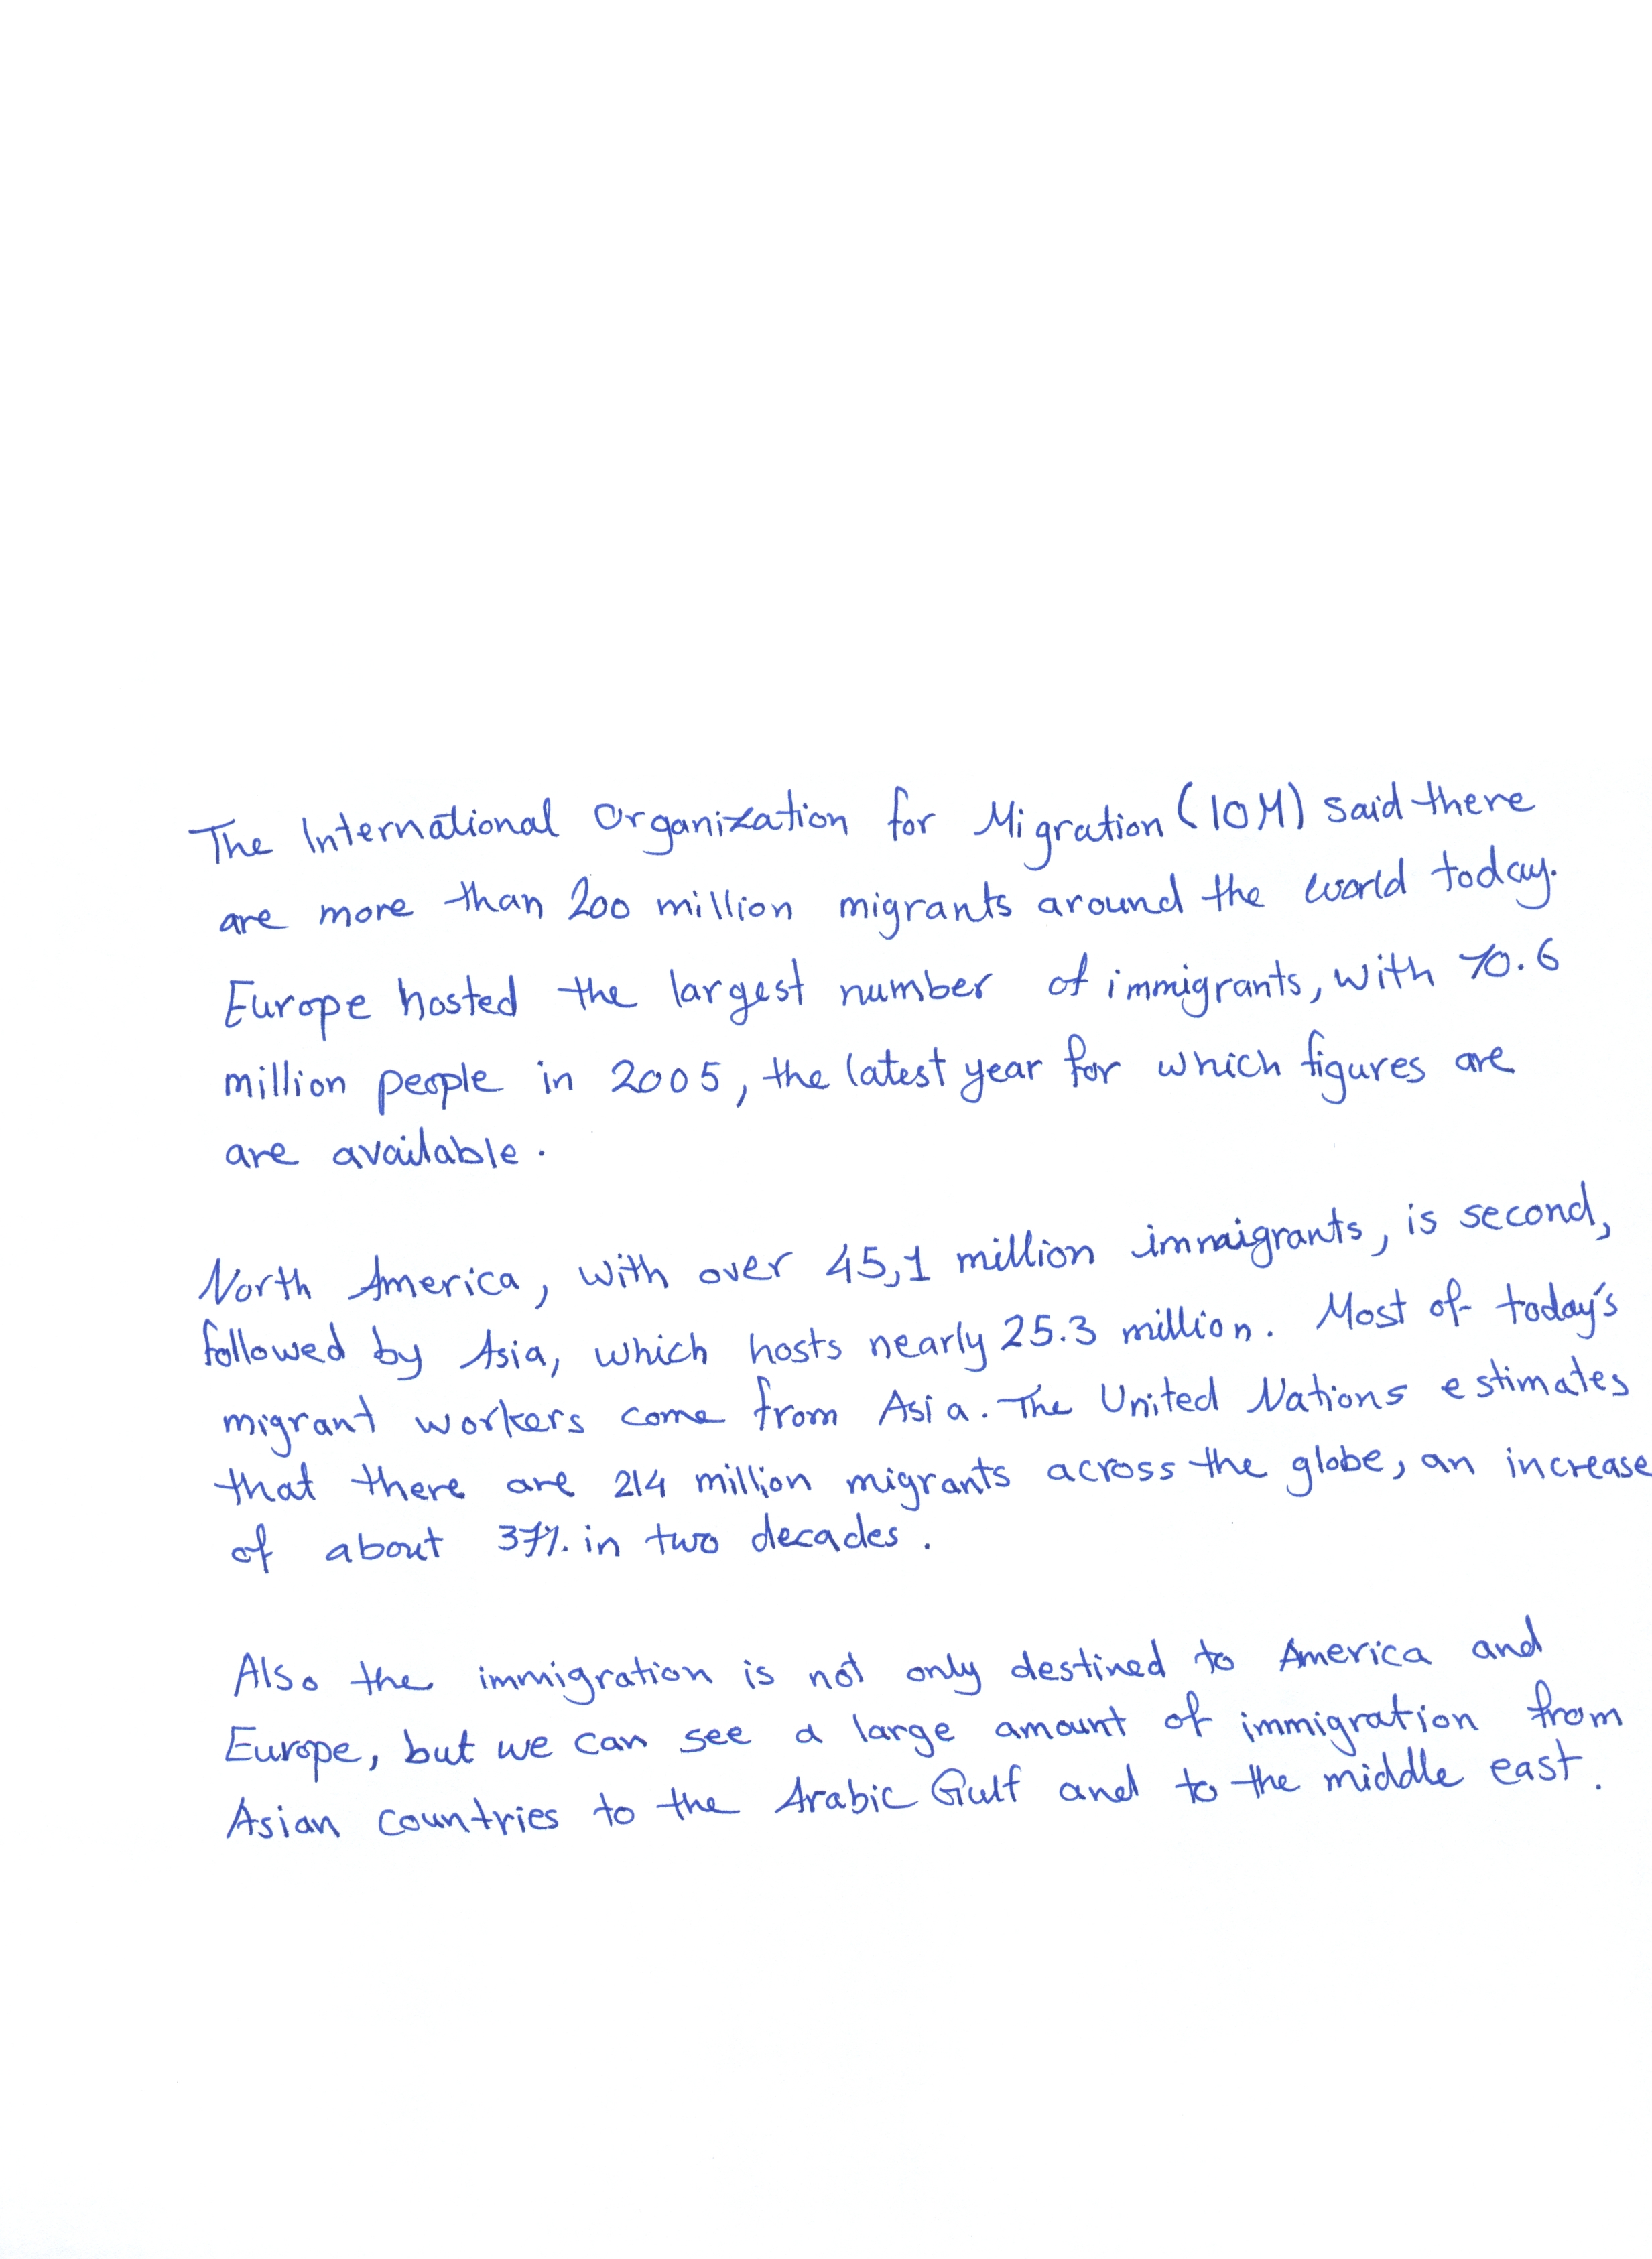 The International Organization for Migration (IOM) said there
are more than 200 million migrants around the world today.
Europe hosted the largest number of immigrants, with 70.6
million people in 2005, the latest year for which figures are
are available.
North America, with over 45,1 million immigrants, is second,
followed by Asia, which hosts nearly 25.3 million. Most of today's
migrant workers come from Asia. The United Nations estimates
that there are 214 million migrants across the globe, an increase
of about 37% in two decades.
Also the immigration is not only destined to America and
Europe, but we can see a large amount of immigration from
Asian countries to the Arabic Gulf and to the middle east.